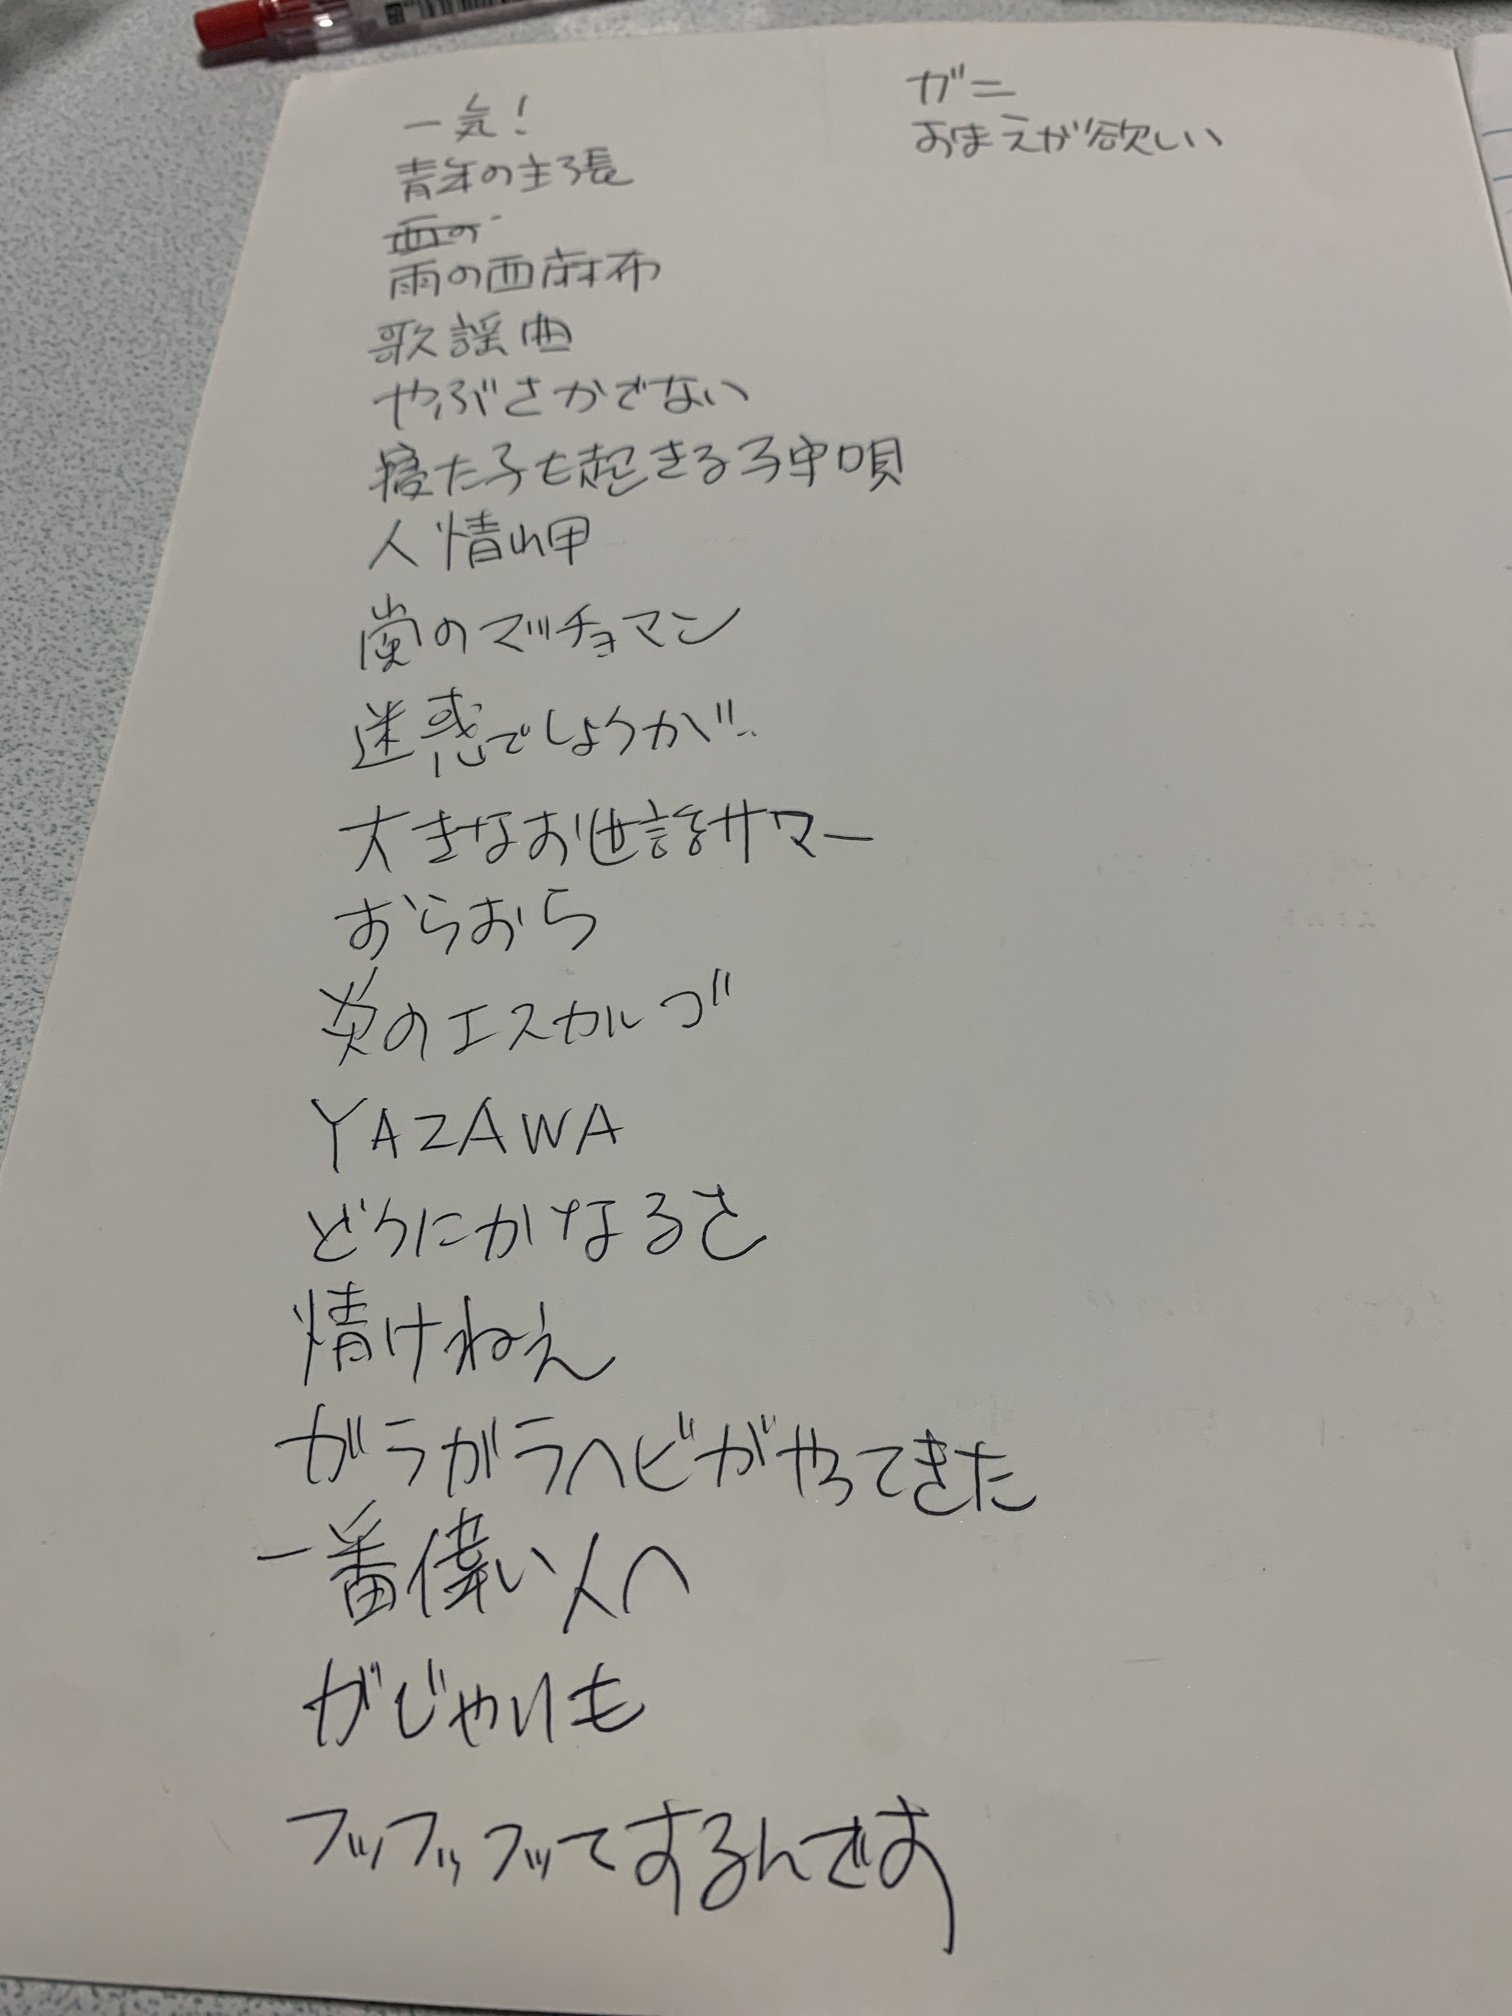 一気!
青年の主張
西の
雨の西麻布
歌謡曲
やぶさかでない
寝た子も起きる子守唄
人情岬
嵐のマッチョマン
迷惑でしょうが…
大きなお世話サマー
おらおら
炎のエスカルゴ
YAZAWA
どうにかなるさ
情けねえ
ガラガラヘビがやってきた
一番偉い人へ
がじゃいも
フッフッフッてするんです
ガニ
おまえが欲しい